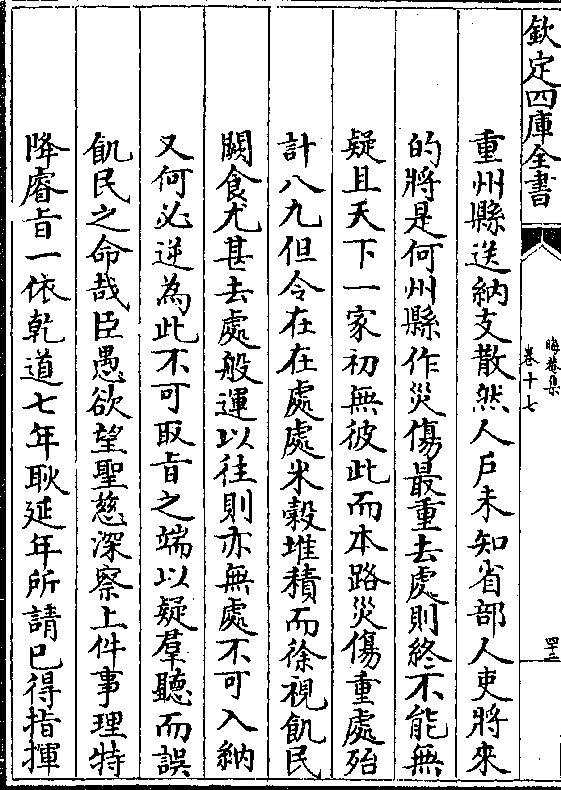 欽定四庫全書
晦菴集
卷十七
四十二
重州縣送納支散然人戶未知省部人吏將來
的將是何州縣作災傷最重去處則終不能無
疑且天下一家初無彼此而本路災傷重處殆
計八九但令在在處處米穀堆積而徐視飢民
闕食尤甚去處般運以往則亦無處不可入納
又何必逆為此不可取旨之端以疑羣聽而誤
飢民之命哉臣愚欲望聖慈深察上件事理特
降睿旨一依乾道七年耿延年所請已得指揮